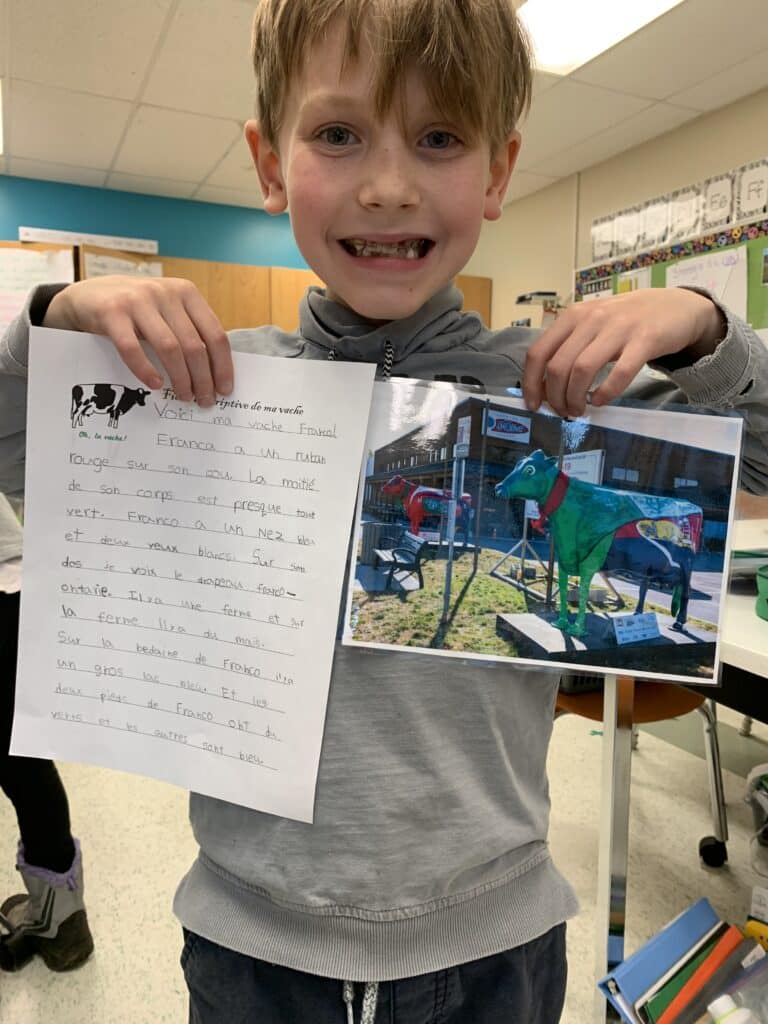 Fic descriptive de ma vache
Oh, la vache!
Voici ma vache Franco!
Franca a un ruban
rouge sur son cou. La moitié
de son corps est presque tout
vert. Franco a un nez bleu
et deux yeux blancs. Sur son
dos je vois le drapeau franco-
ontarie. Il y a une ferme et sur
la ferme il y a du maïs.
Sur la bedaine de Franco il y a
un gros lac bleu. Et les
deux pieds de Franco ont du
verts et les autres sont bleu.